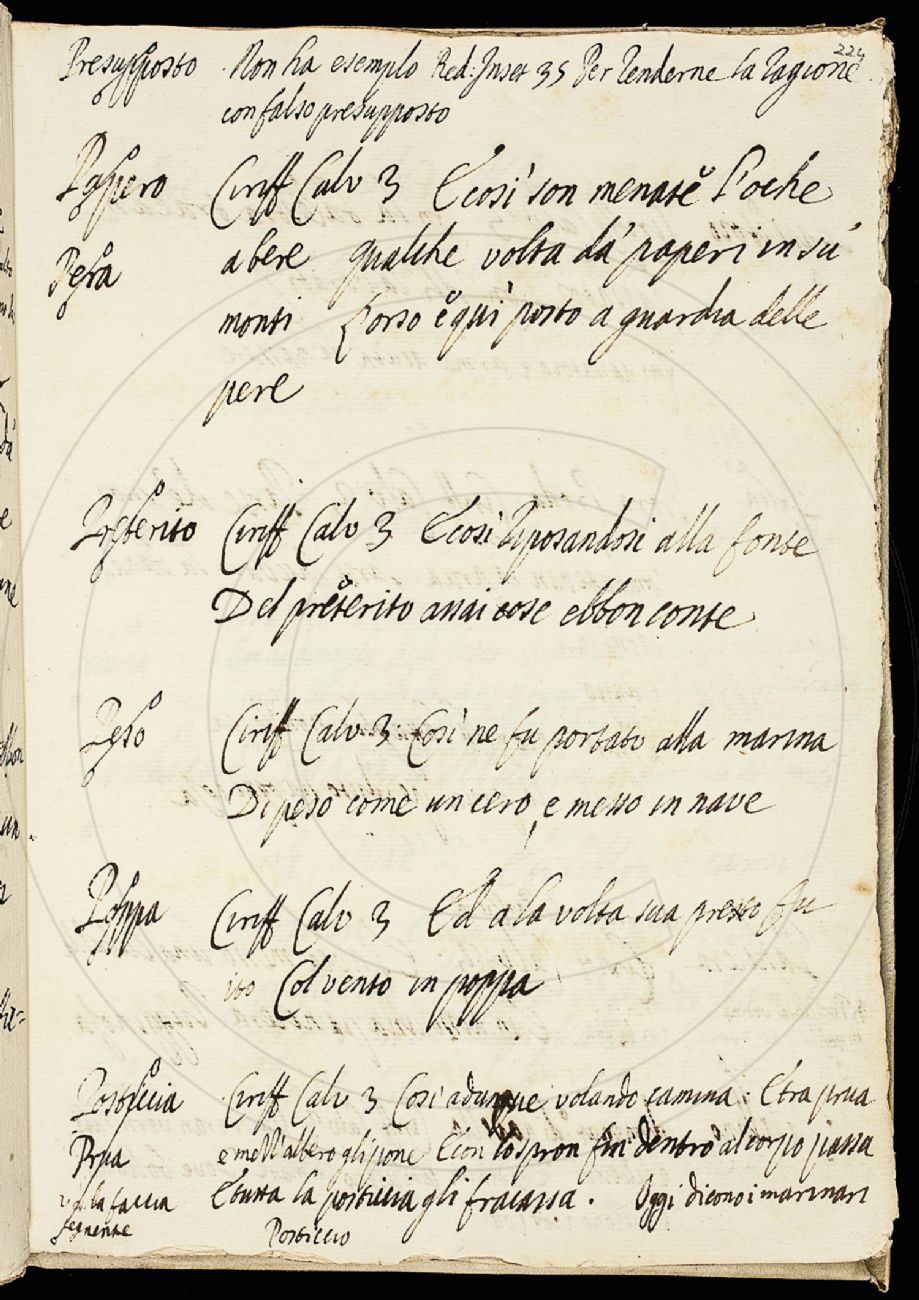 224
Presupposto Non ha esempio Red: Inset 35 Per renderne la ragione
con falso presupposto
Papero Ciriff Calv 3 E così son menate l'oche
Pera a bere qualche volta da' paperi in su'
monti L'orso è qui posto a guardia delle
pere
Preterito Ciriff Calv 3 E così riposandosi alla fonte
Del preterito assai cose ebbon conte
Peso Ciriff Calv 3 Così ne fu portato alla marina
Di peso come un cero, e messo in nave
Poppa Ciriff Calv 3 Ed a la volta sua presto fu
ito Col vento in poppa
Posticcia Ciriff Calv 3 Così adunque volando camina: E tra prua
Prua e mezz'albero gli pone E con lo spron fin dentro al corpo passa
la faccia E tutta la posticcia gli fracassa. Oggi dicono i marinari
seguente Posticcio